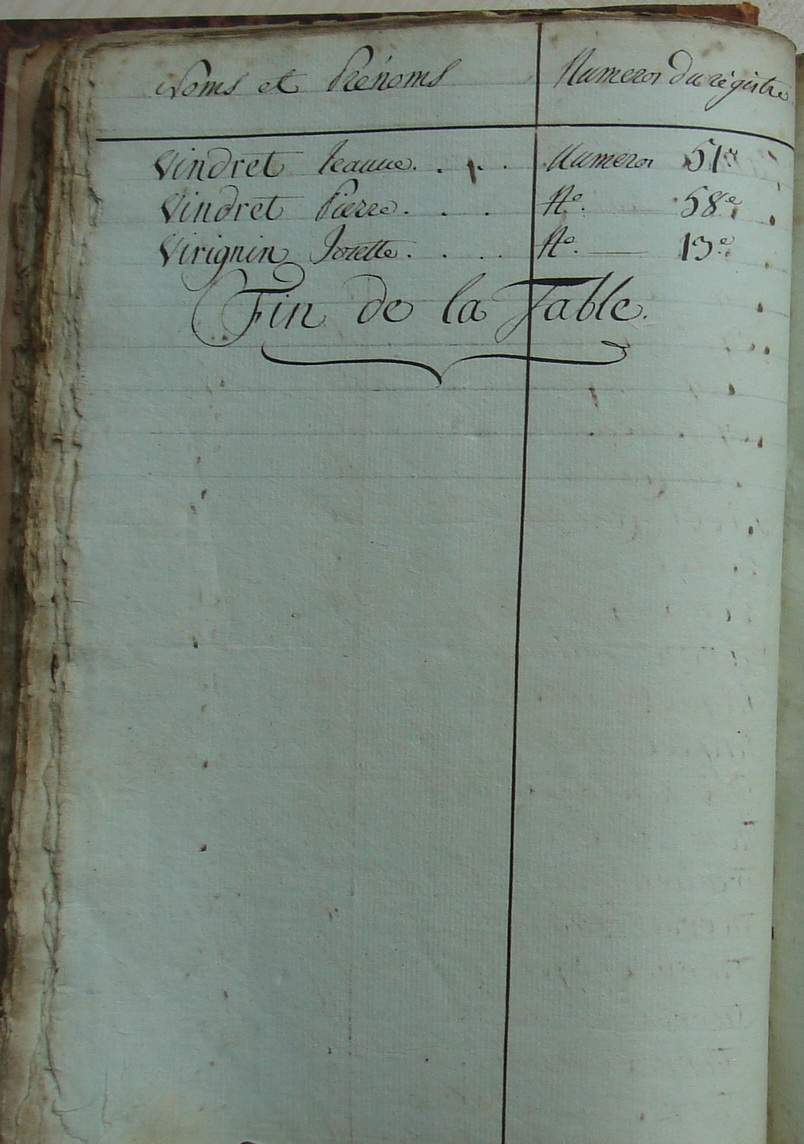 Noms et Prénoms Numeros du régistre
Vindret Jeanne. . . . Numero 51e
Vindret Pierre. . . . No. 58e
Virignin Josette. . . . No. — 13e
Fin de la Table.